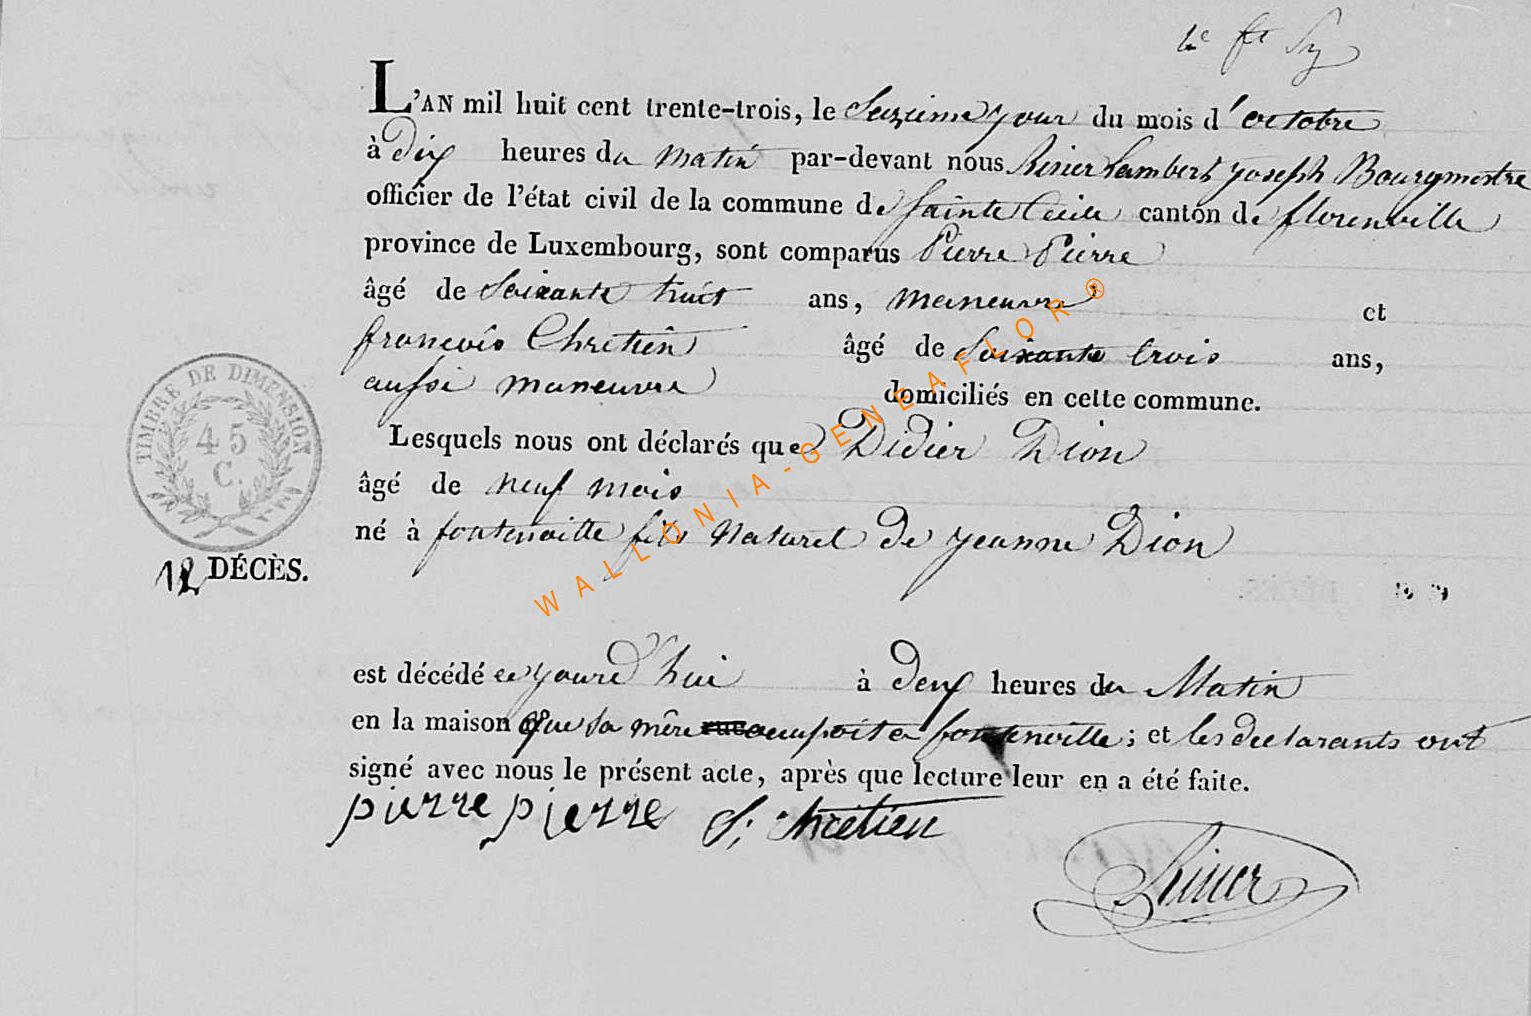 L'AN mil huit cent trente-trois, le Seizieme jour du mois d'octobre
à Dix heures du matin par-devant nous Risier Lambert Joseph Bourgmestre
officier de l'état civil de la commune de Sainte Cecile canton de florenville
province de Luxembourg, sont comparus Pierre Pierre
âgé de Soixante huit ans, maneuvre et
françois Chretien âgé de Soixante trois ans,
aussi maneuvre domiciliés en cette commune.
Lesquels nous ont déclarés que Didier Dion
âgé de neuf mois
né à fontenoille fils naturel de jeanne Dion
TIMBRE DE DIMENSION
45
C.
12 DÉCÈS.
est décédé ce jourd'hui à deux heures du Matin
en la maison que sa mère occupoit a fontenoille; et les declarants ont
signé avec nous le présent acte, après que lecture leur en a été faite.
pierre pierre f. chrétien
WALLONIA-GENEAFLOR®